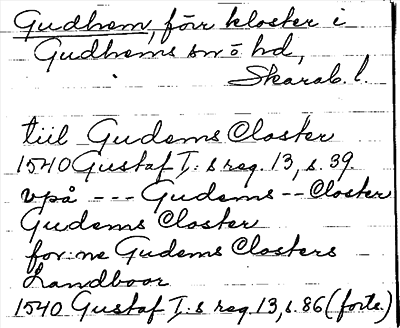 Gudhem, förr kloster i
Gudhems sn o hd,
Skarab. l.
tiil Gudems Closter
1540 Gustaf I:s reg. 13, s. 39.
vpå --- Gudems -- Closter
Gudems Closter
for:ne Gudems Closters
Landboar
1540 Gustaf I:s reg. 13, s. 86 (forts.)